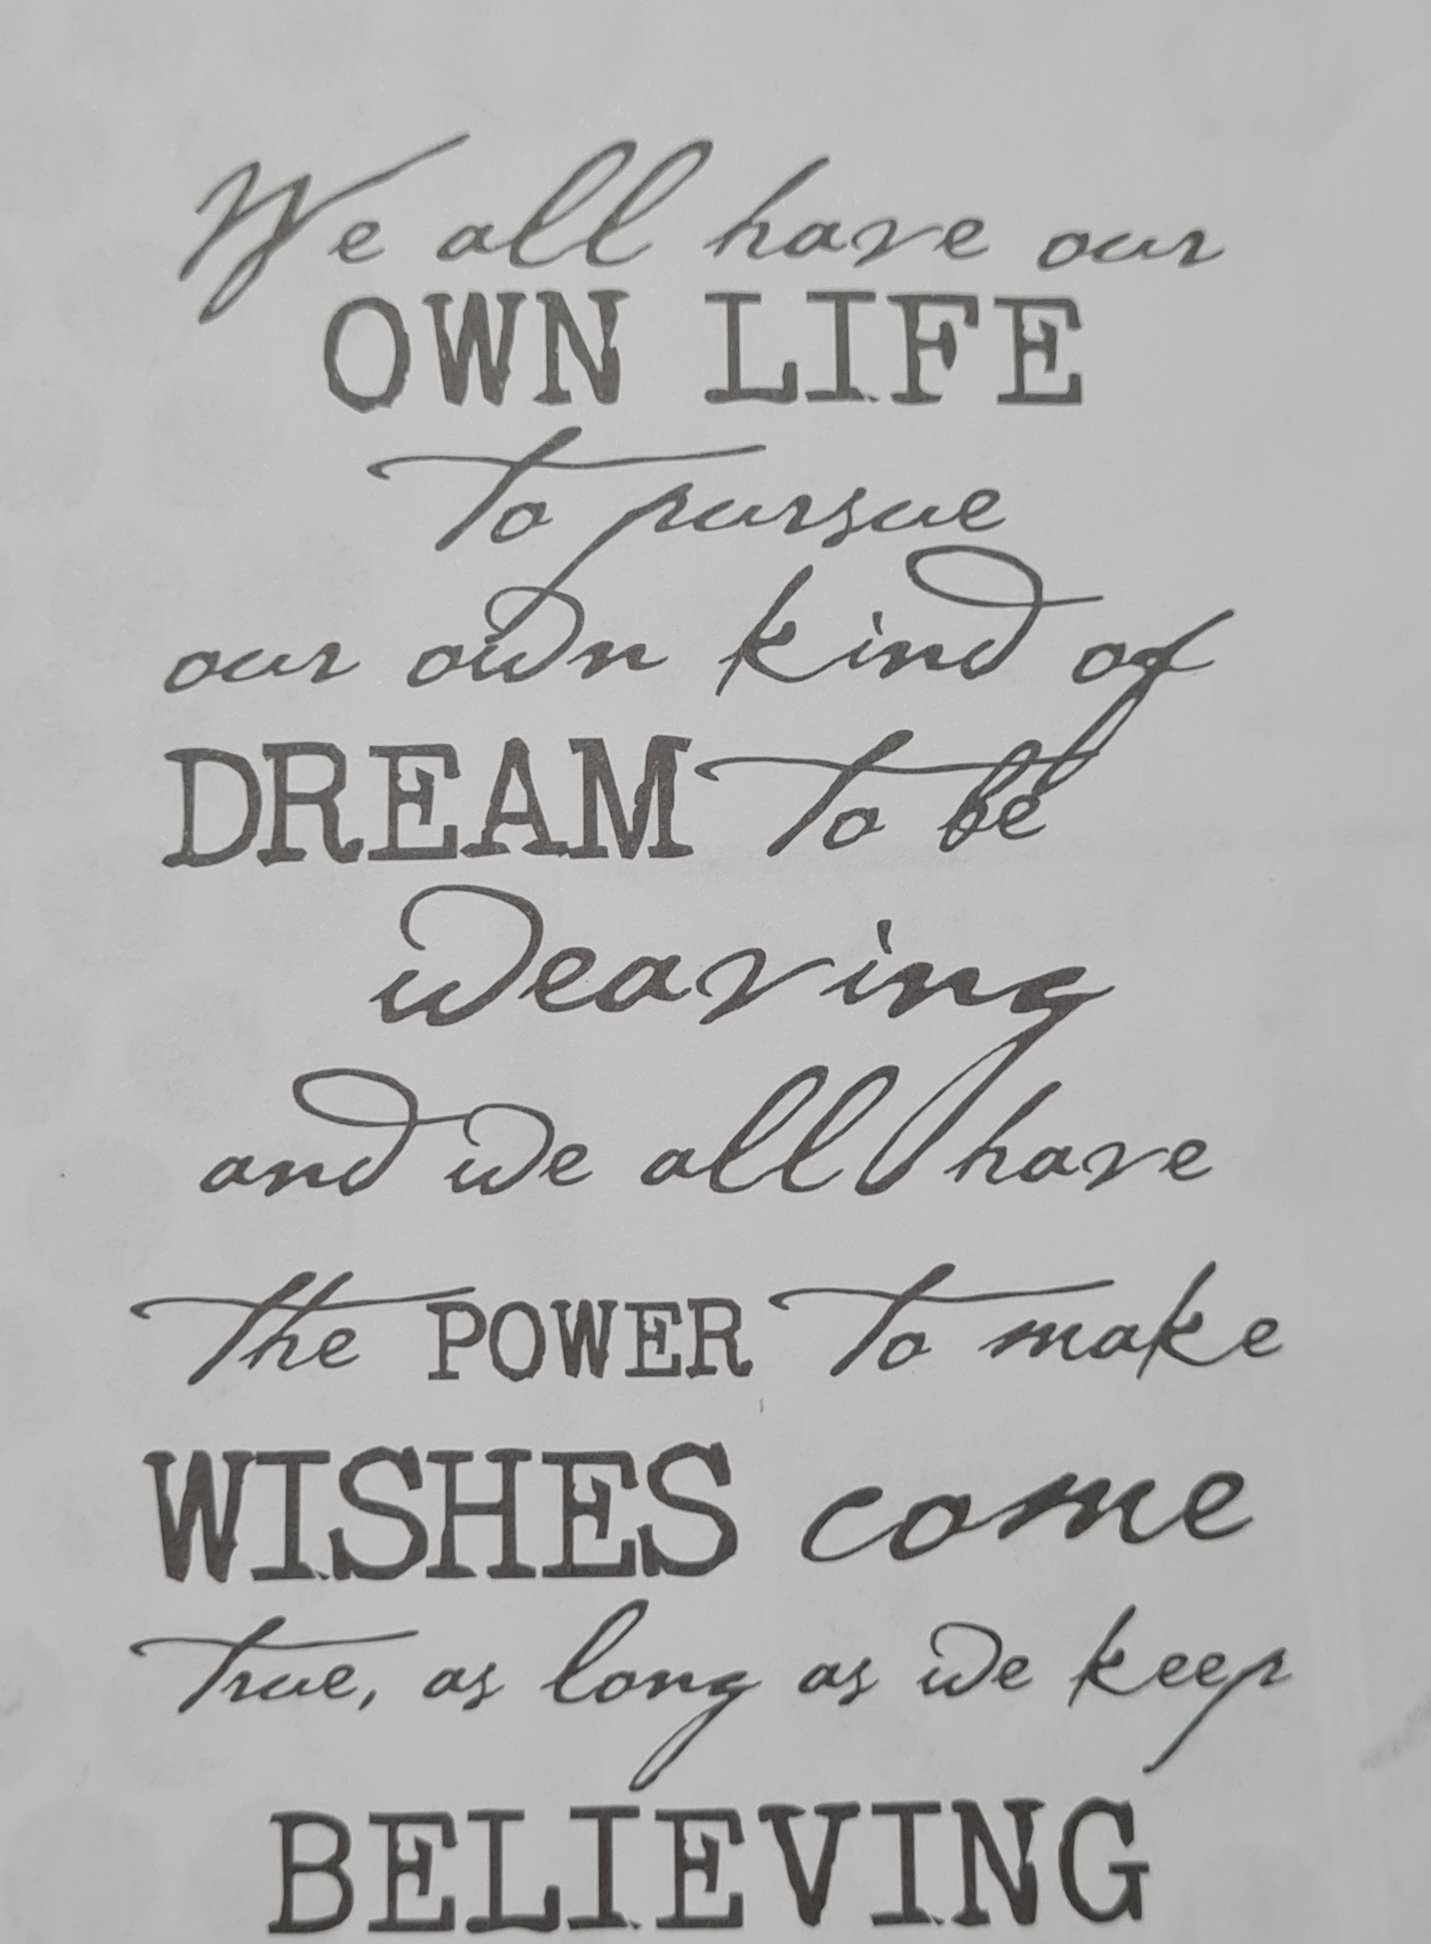 We all have our
OWN LIFE
to pursue
our own kind of
DREAM to be
weaving
and we all have
the POWER to make
WISHES come
true, as long as we keep
BELIEVING